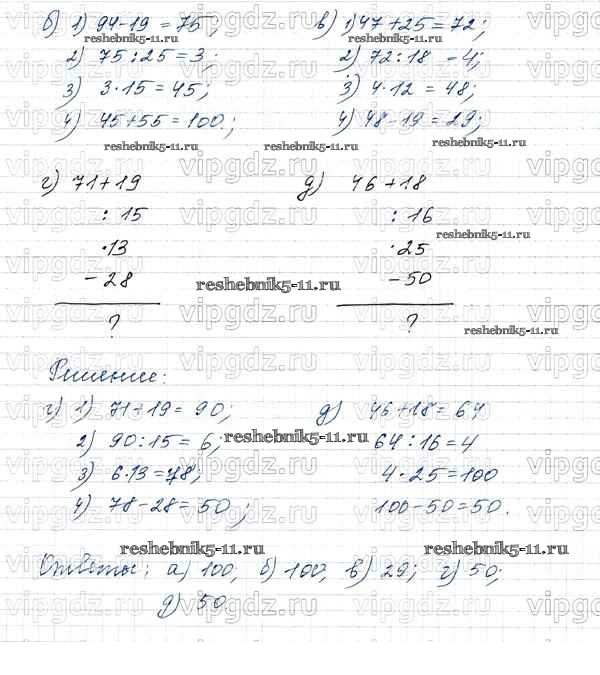 б) 1) 94-19 = 75; в) 1) 47+25=72;
2) 75:25=3; 2) 72:18 - 4;
3) 3·15=45; 3) 4·12 = 48;
4) 45+55=100.; 4) 48-19=29;
г) 71+19 д) 46+18
: 15 : 16
·13 ·25
-28 -50
? ?
Решение:
г) 1) 71+19= 90; д) 46+18= 64
2) 90:15= 6; 64:16=4
3) 6·13=78; 4·25=100
4) 78-28= 50; 100-50=50.
Ответы: а) 100; б) 100; в) 29; г) 50;
д) 50
reshebnik5-11.ru
vipgdz.ru